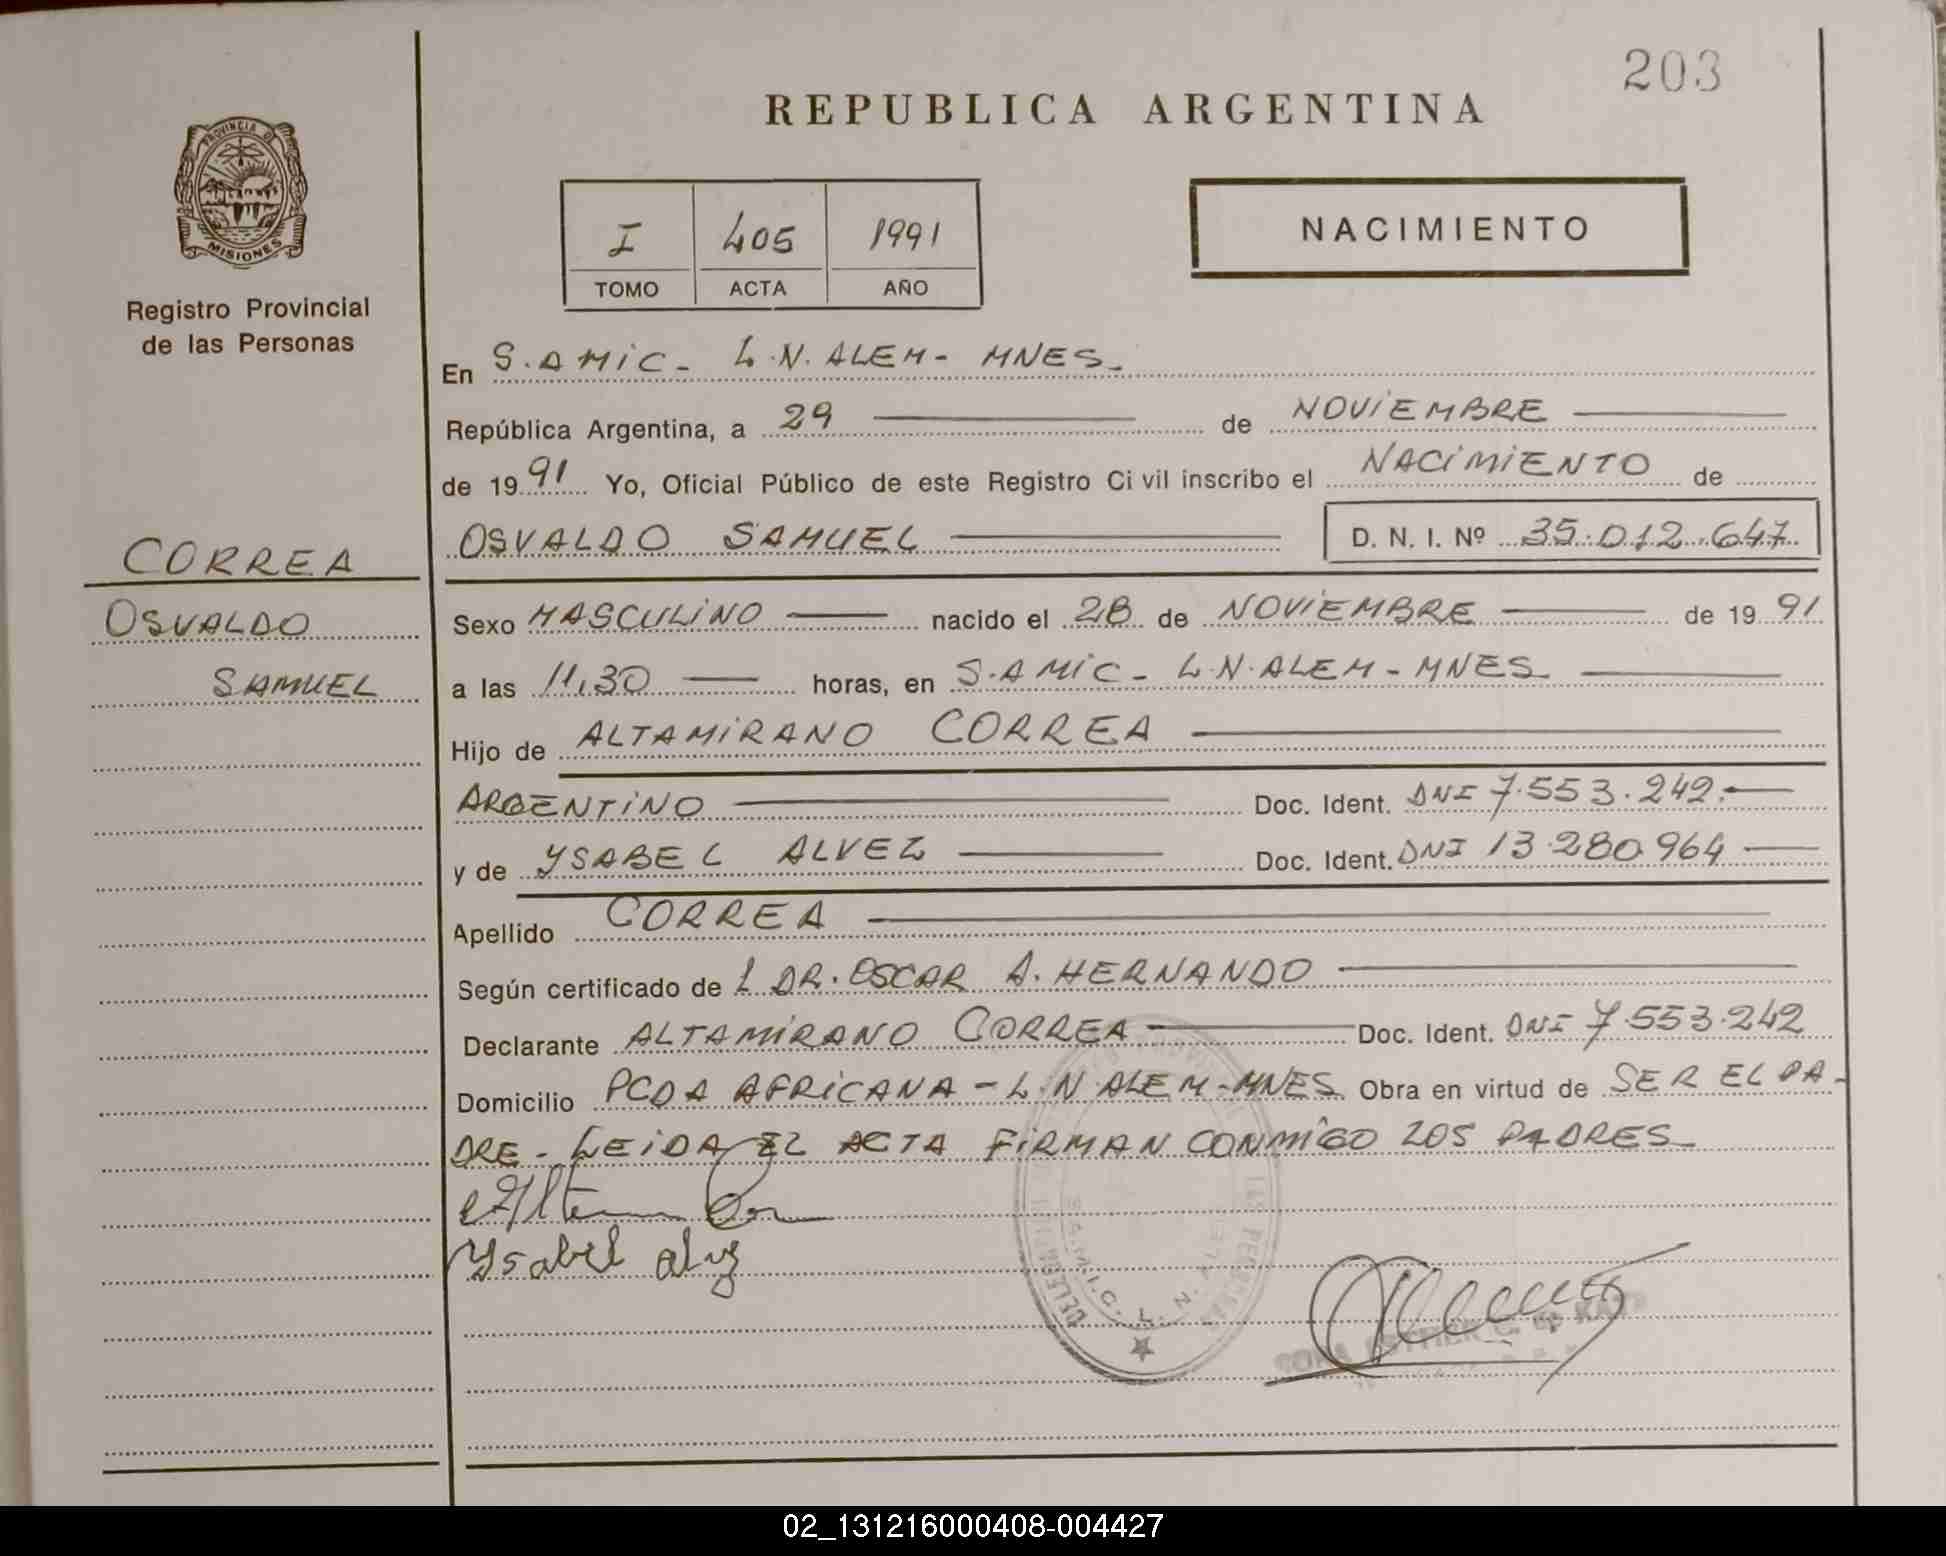 203
REPUBLICA ARGENTINA
PROVINCIA DE
MISIONES
Registro Provincial
de las Personas
I 405 1991
TOMO ACTA AÑO
NACIMIENTO
En S.AMIC- L.N.ALEM- MNES-
República Argentina, a 29 de NOVIEMBRE
de 1991 Yo, Oficial Público de este Registro Civil inscribo el NACIMIENTO de
OSVALDO SAMUEL D. N. I. Nº 35.012.647
CORREA
OSVALDO
SAMUEL
Sexo MASCULINO nacido el 28 de NOVIEMBRE de 1991
a las 11,30 horas, en S.AMIC- L.N.ALEM-MNES
Hijo de ALTAMIRANO CORREA
ARGENTINO Doc. Ident. DNI 7.553.242.-
y de YSABEL ALVEZ Doc. Ident. DNI 13.280.964
Apellido CORREA
Según certificado de L DR. OSCAR A. HERNANDO
Declarante ALTAMIRANO CORREA Doc. Ident. DNI 7.553.242
Domicilio PCDA AFRICANA-L.N ALEM-MNES Obra en virtud de SER EL PA-
DRE- LEIDA EL ACTA FIRMAN CONMIGO LOS PADRES-
Ysabel alvz
S.A.M.I.C. L. N. ALE
02_131216000408-004427